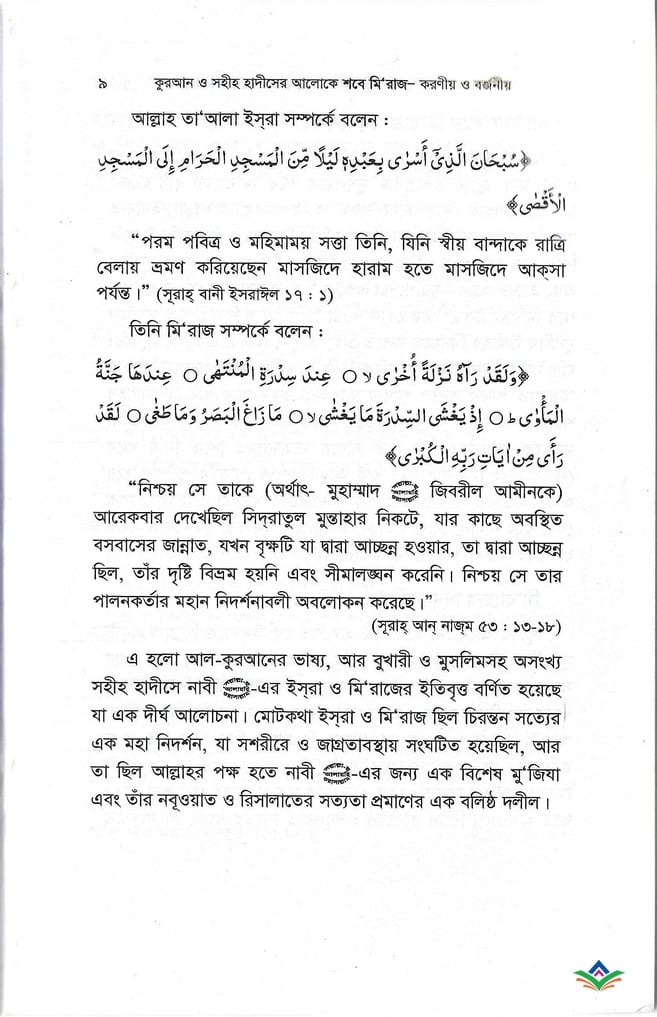 ৯ কুরআন ও সহীহ হাদীসের আলোকে শবে মি‘রাজ– করণীয় ও বর্জনীয়
আল্লাহ তা‘আলা ইস্‌রা সম্পর্কে বলেন :
﴿سُبْحَانَ الَّذِيْ أَسْرٰى بِعَبْدِهٖ لَيْلًا مِّنَ الْمَسْجِدِ الْحَرَامِ إِلَى الْمَسْجِدِ
الْأَقْصٰى﴾
“পরম পবিত্র ও মহিমাময় সত্তা তিনি, যিনি স্বীয় বান্দাকে রাত্রি
বেলায় ভ্রমণ করিয়েছেন মাসজিদে হারাম হতে মাসজিদে আক্‌সা
পর্যন্ত।” (সূরাহ্ বানী ইসরাঈল ১৭ : ১)
তিনি মি‘রাজ সম্পর্কে বলেন :
﴿وَلَقَدْ رَآهُ نَزْلَةً أُخْرٰى لا ○ عِنْدَ سِدْرَةِ الْمُنْتَهٰى ○ عِنْدَهَا جَنَّةُ
الْمَأْوٰى ط ○ إِذْ يَغْشَى السِّدْرَةَ مَا يَغْشٰى لا ○ مَا زَاغَ الْبَصَرُ وَمَا طَغٰى ○ لَقَدْ
رَأَى مِنْ اٰيَاتِ رَبِّهِ الْكُبْرٰى﴾
“নিশ্চয় সে তাকে (অর্থাৎ- মুহাম্মাদ জিবরীল আমীনকে)
আরেকবার দেখেছিল সিদ্‌রাতুল মুন্তাহার নিকটে, যার কাছে অবস্থিত
বসবাসের জান্নাত, যখন বৃক্ষটি যা দ্বারা আচ্ছন্ন হওয়ার, তা দ্বারা আচ্ছন্ন
ছিল, তাঁর দৃষ্টি বিভ্রম হয়নি এবং সীমালঙ্ঘন করেনি। নিশ্চয় সে তার
পালনকর্তার মহান নিদর্শনাবলী অবলোকন করেছে।”
(সূরাহ্ আন্ নাজ্‌ম ৫৩ : ১৩-১৮)
এ হলো আল-কুরআনের ভাষ্য, আর বুখারী ও মুসলিমসহ অসংখ্য
সহীহ হাদীসে নাবী -এর ইস্‌রা ও মি‘রাজের ইতিবৃত্ত বর্ণিত হয়েছে
যা এক দীর্ঘ আলোচনা। মোটকথা ইস্‌রা ও মি‘রাজ ছিল চিরন্তন সত্যের
এক মহা নিদর্শন, যা সশরীরে ও জাগ্রতাবস্থায় সংঘটিত হয়েছিল, আর
তা ছিল আল্লাহর পক্ষ হতে নাবী -এর জন্য এক বিশেষ মু‘জিযা
এবং তাঁর নবূওয়াত ও রিসালাতের সত্যতা প্রমাণের এক বলিষ্ঠ দলীল।